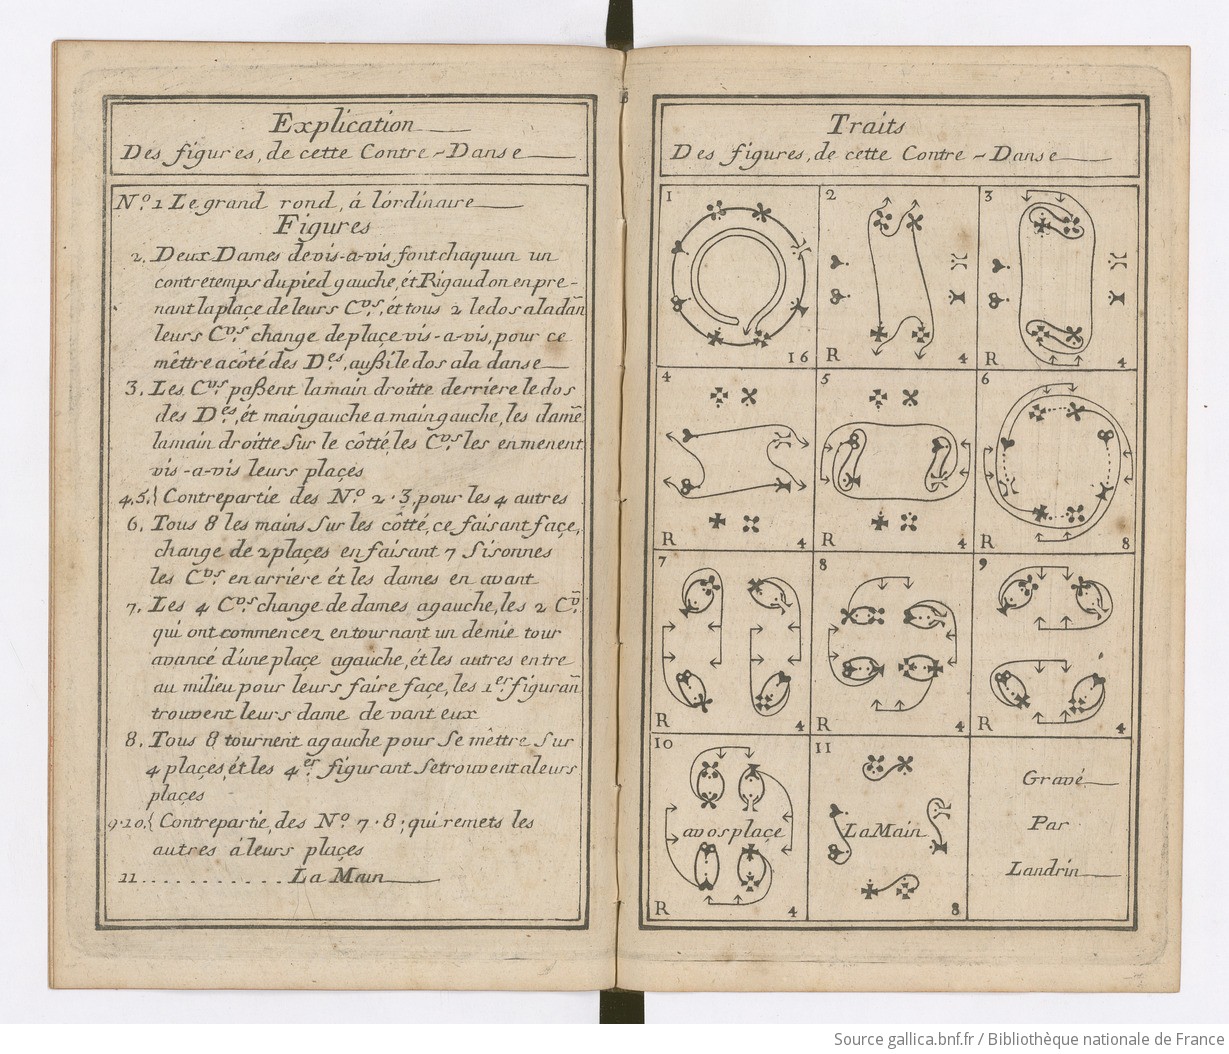 Explication
Des figures, de cette Contre-Danse
N.º 1 Le grand rond, á lórdinaire
Figures
2. Deux Dames devis-a-vis, font chaquun un
contretemps du pied gauche, ét Rigaudon en pre-
nant la place de leurs C.vrs, ét tous 2 le dos a la dan̄
leurs C.vrs change de place vis-a-vis, pour ce
mêttre a côté des D.es, außi le dos a la danse
3. Les C.vrs paßent la main droitte derriere le dos
des D.es, ét main gauche a main gauche, les dam̄e
la main droitte sur le côtté, les C.vrs les en menent
vis-a-vis leurs plaçes
4.5.{ Contrepartie des N.º 2.3, pour les 4 autres
6. Tous 8 les mains sur les côtté, ce faisant façe,
change de 2 plaçes en faisant 7 Sisonnes
les C.vrs en arriere ét les dames en avant
7. Les 4 C.vrs change de dames a gauche, les 2 C.v̄
qui ont commencez en tournant un demie tour
avancé d'une plaçe a gauche, ét les autres entre
au milieu pour leurs faire façe, les 1.ers figuran̄
trouvent leurs dame de vant eux
8. Tous 8 tournent a gauche pour Se mêttre Sur
4 plaçes, ét les 4 er figurant Se trouvent a leurs
plaçes
9.10.{ Contrepartie, des N.º 7.8; qui remets les
autres á leurs plaçes
11............La Main
Traits
Des figures, de cette Contre-Danse
1
16
2
R 4
3
R 4
4
R 4
5
R 4
6
R 8
7
R 4
8
R 4
9
4
10
a vos plaçe
R 4
11
La Main
8
Gravé
Par
Landrin
Source gallica.bnf.fr / Bibliothèque nationale de France